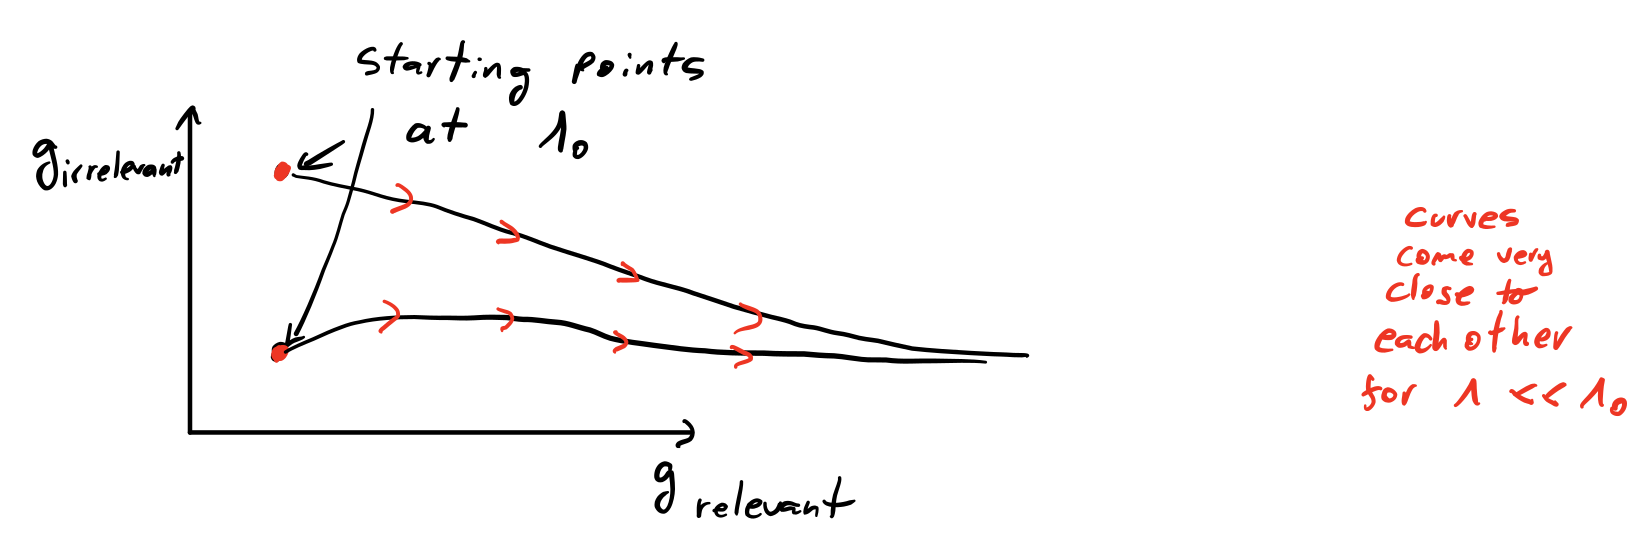 starting points
at Λ₀
g irrelevant
g relevant
curves
come very
close to
each other
for Λ << Λ₀